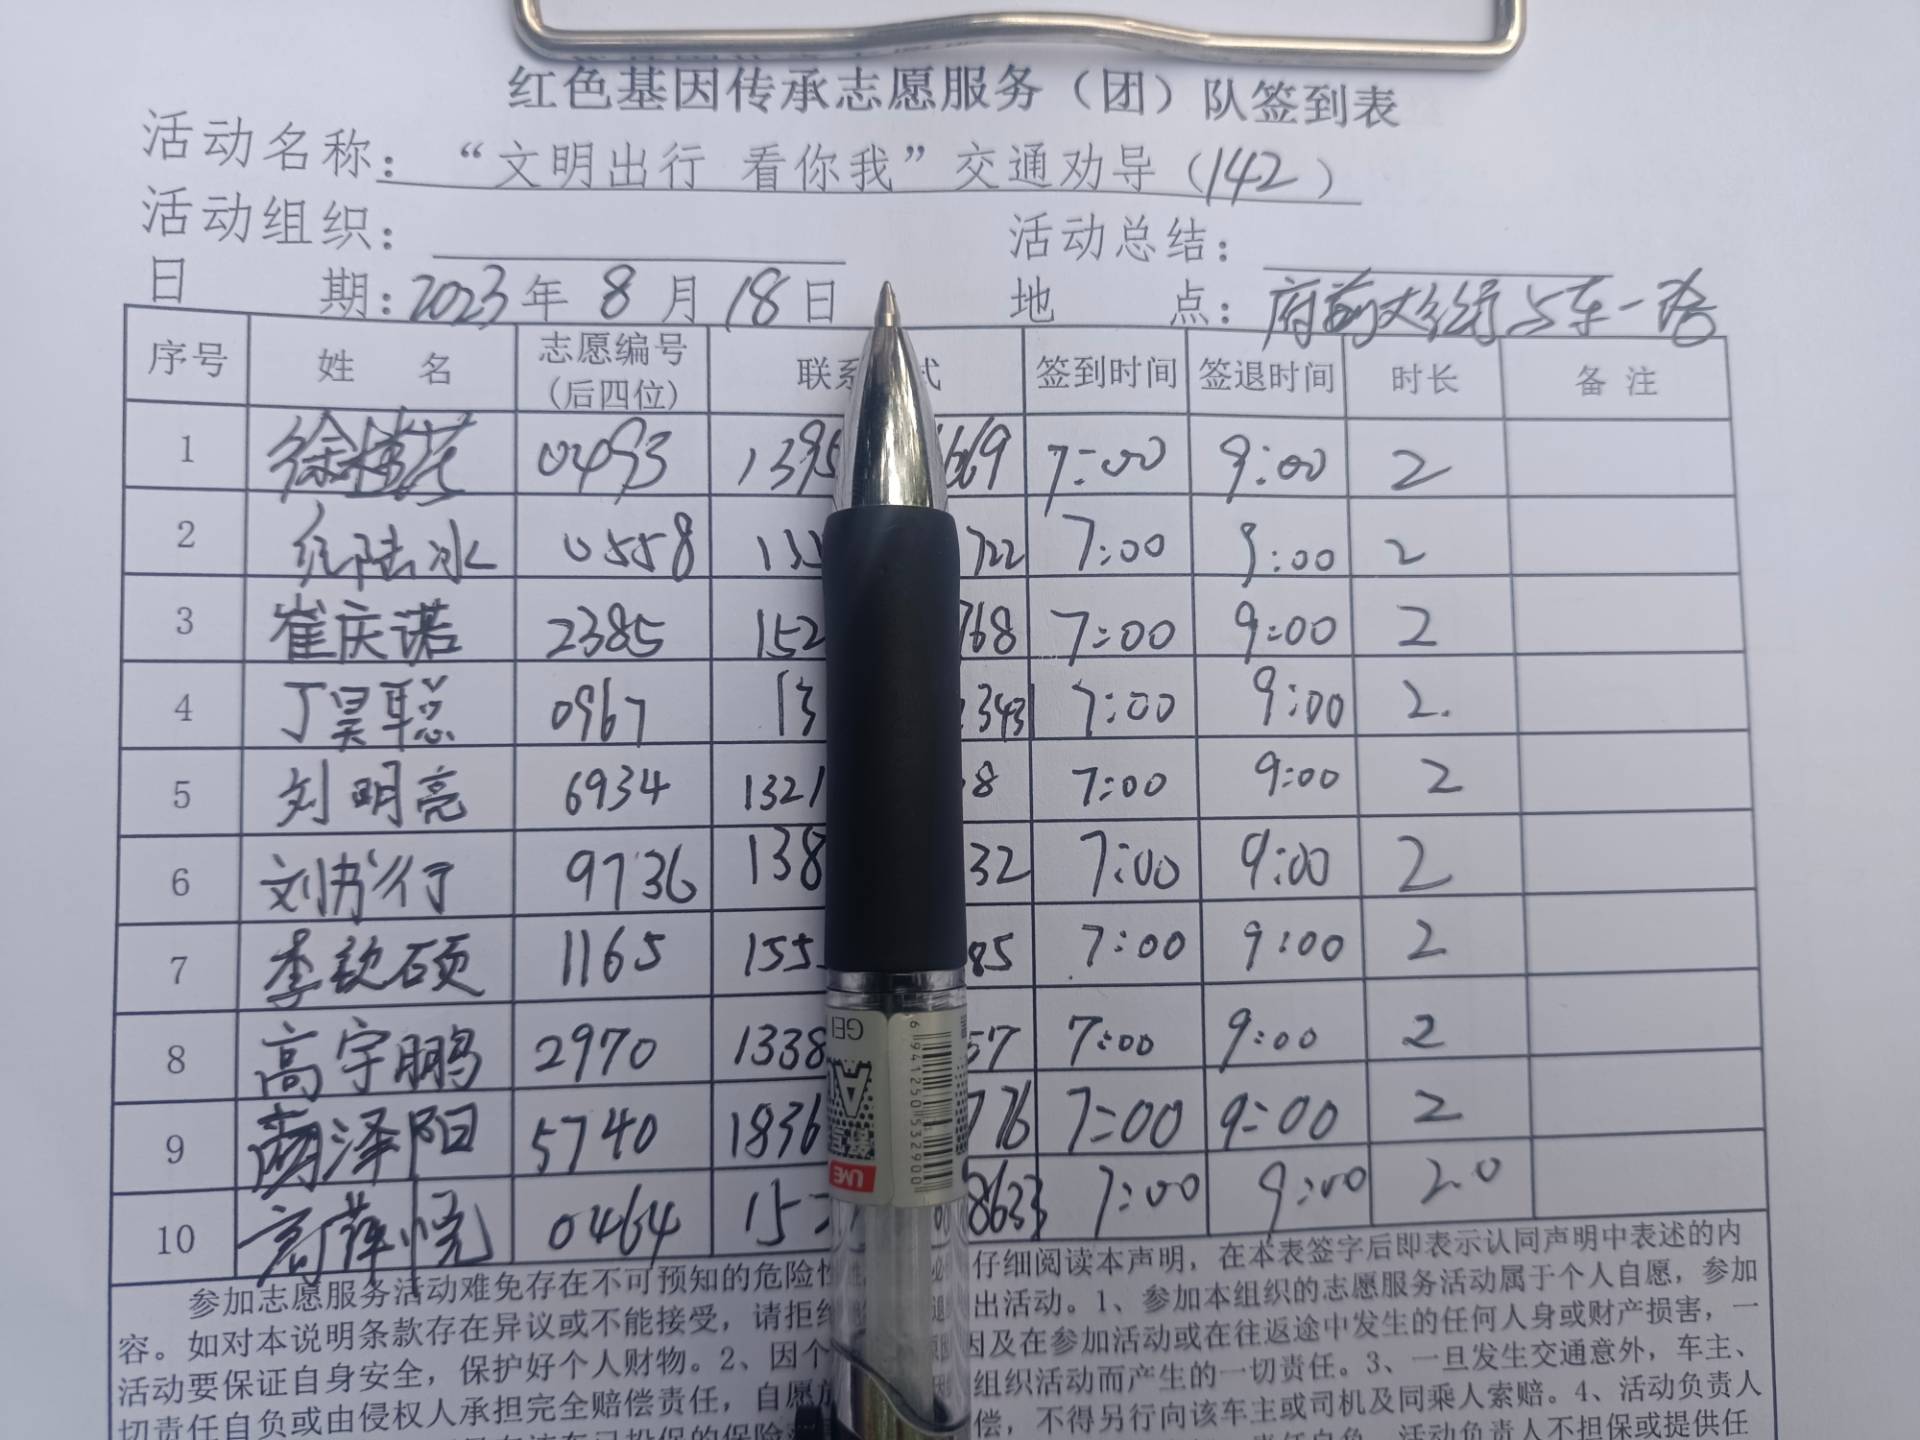 红色基因传承志愿服务（团）队签到表
活动名称：“文明出行 看你我”交通劝导（142）
活动组织： 活动总结：
日 期：2023年 8 月 18日 地 点：府前大街与东一路
序号 姓 名 志愿编号（后四位） 联系 式 签到时间 签退时间 时长 备 注
1 徐 0493 1395 669 7:00 9:00 2
2 陆冰 0558 135 722 7:00 9:00 2
3 崔庆诺 2385 152 768 7:00 9:00 2
4 丁昊聪 0967 13 343 7:00 9:00 2.
5 刘明亮 6934 1321 8 7:00 9:00 2
6 刘书行 9736 138 32 7:00 9:00 2
7 李钦硕 1165 155 85 7:00 9:00 2
8 高宇鹏 2970 1338 57 7:00 9:00 2
9 蔺泽阳 5740 1836 776 7:00 9:00 2
10 高 悦 0464 15 8633 7:00 9:00 2.0
参加志愿服务活动难免存在不可预知的危险性 仔细阅读本声明，在本表签字后即表示认同声明中表述的内
容。如对本说明条款存在异议或不能接受，请拒绝 出活动。1、参加本组织的志愿服务活动属于个人自愿，参加
活动要保证自身安全，保护好个人财物。2、因个 因及在参加活动或在往返途中发生的任何人身或财产损害，一
切责任自负或由侵权人承担完全赔偿责任，自愿放 组织活动而产生的一切责任。3、一旦发生交通意外，车主、
偿，不得另行向该车主或司机及同乘人索赔。4、活动负责人
已投保的保险 责任自负，活动负责人不担保或提供任
GE
6941250532900
UME